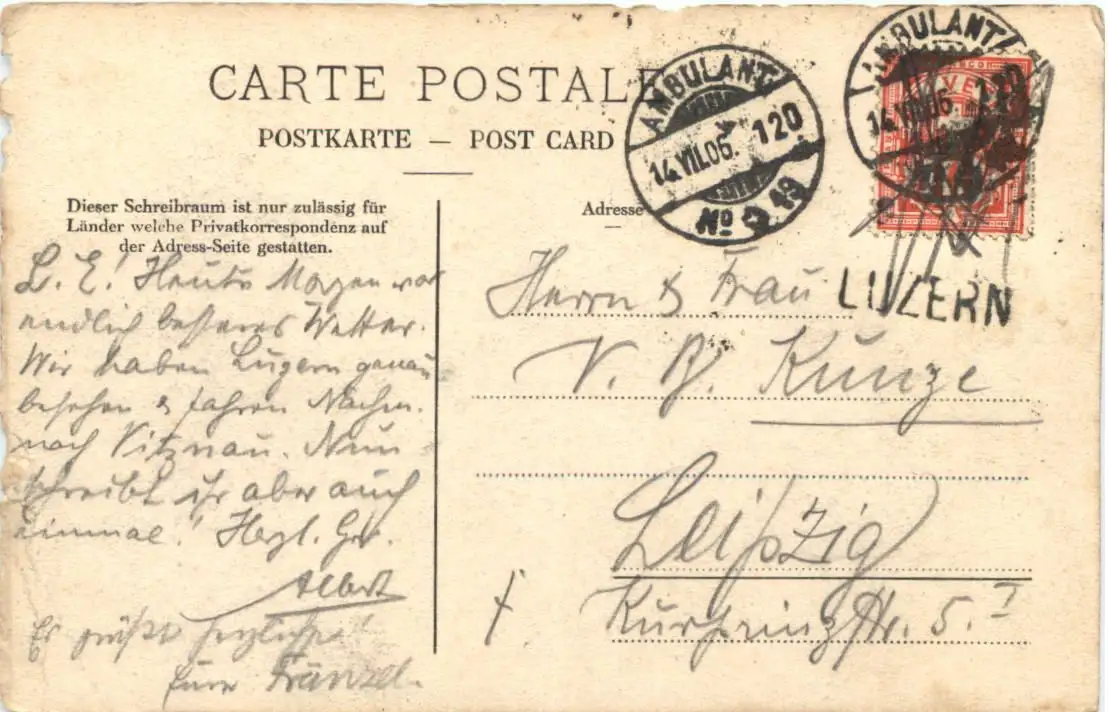 CARTE POSTALE
POSTKARTE — POST CARD
Dieser Schreibraum ist nur zulässig für
Länder welche Privatkorrespondenz auf
der Adress-Seite gestatten.
Adresse
AMBULANT
14.VII.06.
120
No 49
AMBULANT
14.VII.06.
120
LUZERN
L. E.! Heute Morgen war
endlich besseres Wetter.
Wir haben Luzern genau
besehen & fahren Nachm.
nach Vitznau. Nun
schreibt ihr aber auch
einmal! Herzl. Gr.
Albert
Es grüßt herzlichst
Eure Fränzel.
Herrn & Frau
V. B. Kunze
Leipzig
Kurprinzstr. 5. I